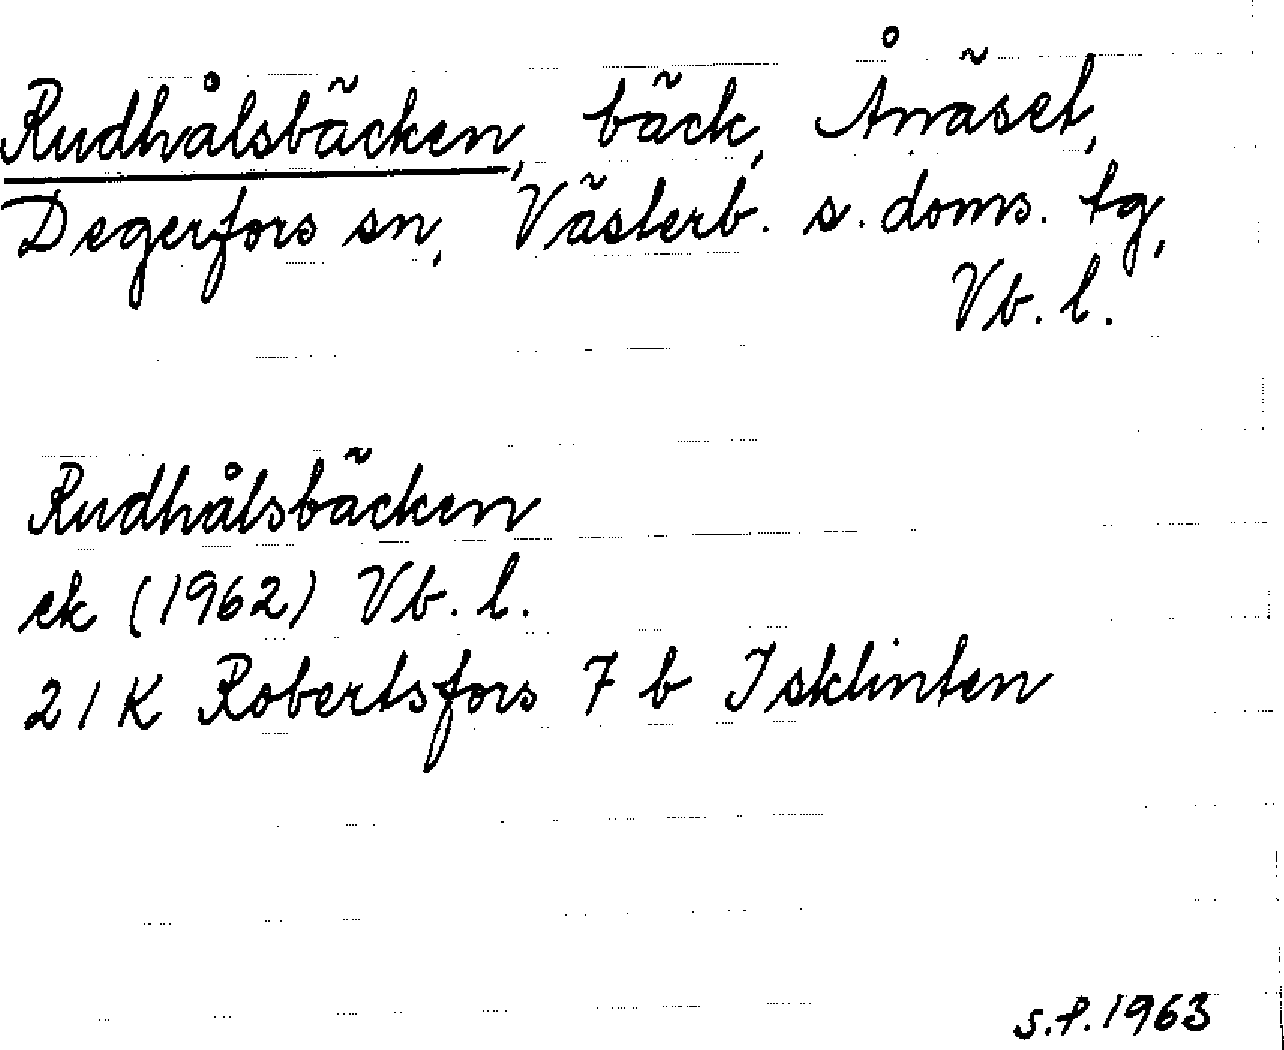 Rudhålsbäcken, bäck, Ånäset,
Degerfors sn, Västerb. s. doms. tg,
Vb. l.
Rudhålsbäcken
ek (1962) Vb. l.
21 K Robertsfors 7 b Isklinten
s.f. 1963